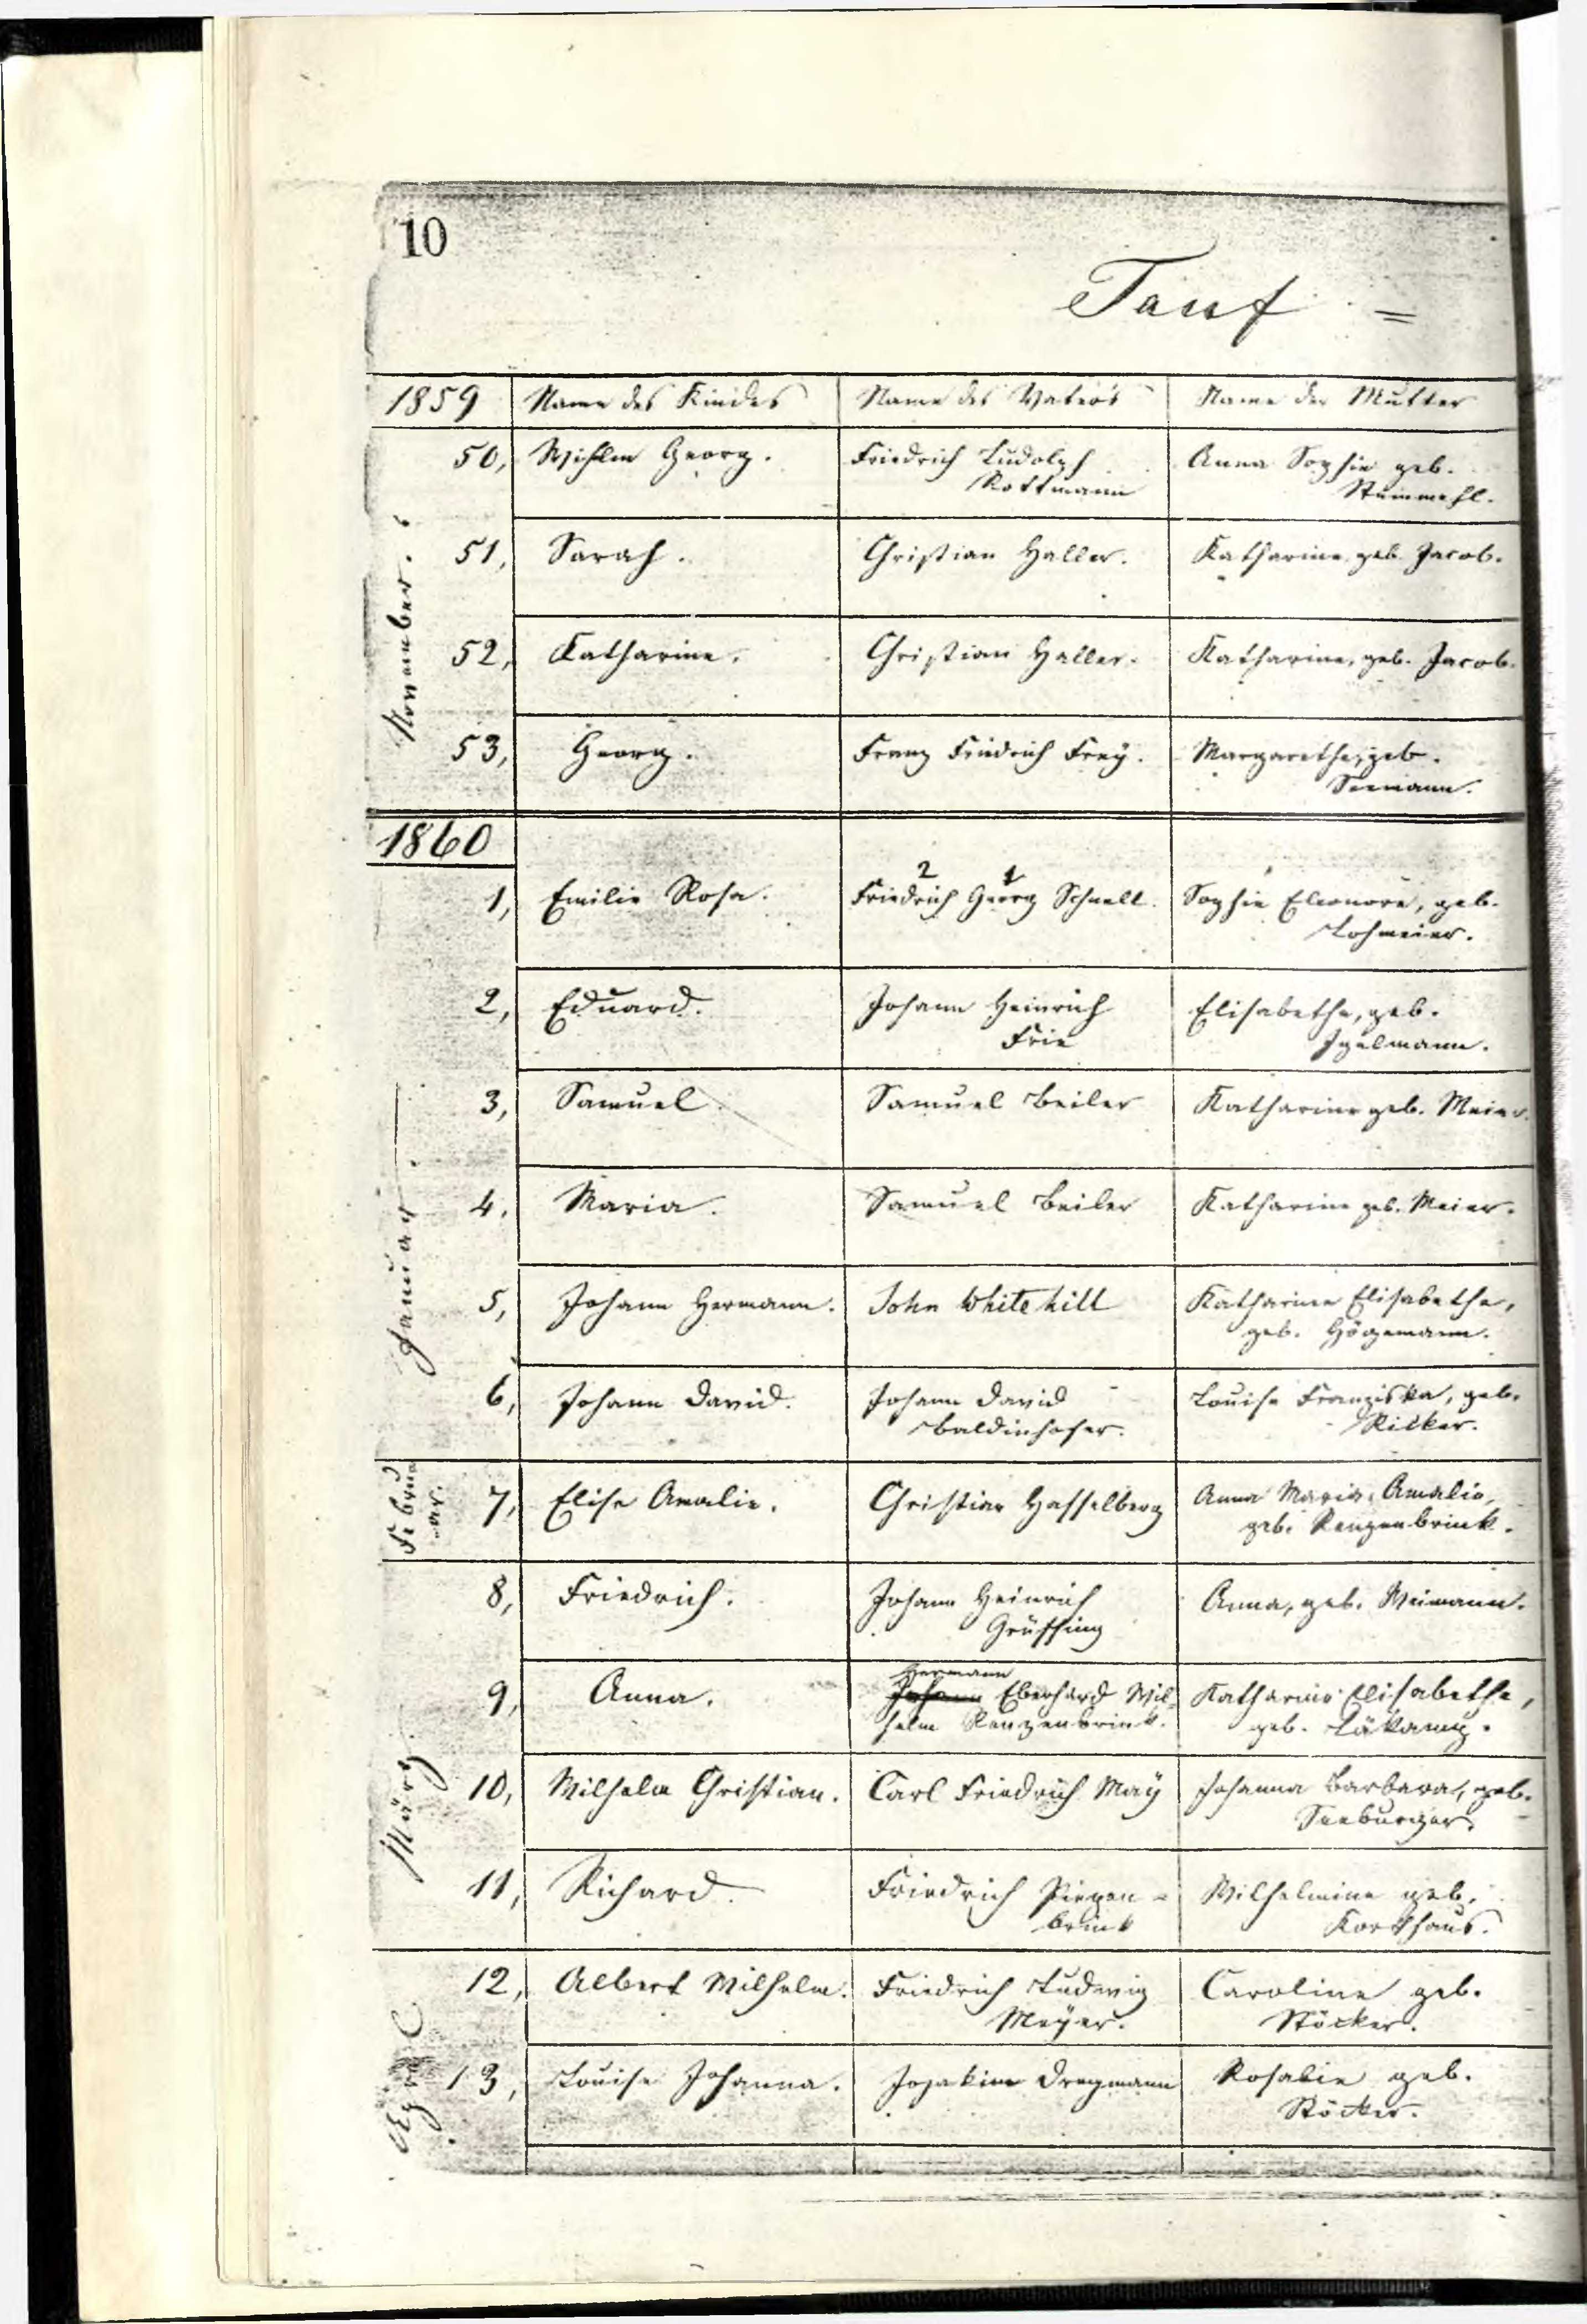 10
Tauf =
1859 Name des Kindes Name des Vaters Name der Mutter
November.
50, Wihlm Georg. Friedrich Ludolph Anna Sophie geb.
Rottmann Stummehl.
51, Sarah. Christian Haller. Katharine geb. Jacob.
52, Katharine. Christian Haller. Katharine, geb. Jacob.
53, Georg. Franz Friedrich Frey. Margarethe, geb.
Seemann.
1860
Januar.
2 1
1, Emilie Rosa. Friedrich Georg Schnell. Sophie Eleonore, geb.
Lohmeier.
2, Eduard. Johann Heinrich Elisabethe, geb.
Frie Igelmann.
3, Samuel. Samuel Beiler Katharine geb. Meier.
4, Maria. Samuel Beiler Katharine geb. Meier.
5, Johann Hermann. John Whitehill Katharine Elisabethe,
geb. Högemann.
6, Johann David. Johann David Louise Franziska, geb.
Baldinhofer. Ricker.
Februar
-ar.
7, Elise Amalie. Christian Hasselberg Anna Maria Amalie,
geb. Renzenbrink.
März
8, Friedrich. Johann Heinrich Anna, geb. Weimann.
Grüssing
Hermann
9, Anna. Johann Eberhard Wil- Katharine Elisabethe,
helm Renzenbrink. geb. Läkamp.
10, Wilhelm Christian. Carl Friedrich Maÿ Johanna Barbara, geb.
Seeburger.
11, Richard. Friedrich Piepen- Wilhelmine geb.
brink Korthaus.
April
12, Albert Wilhelm. Friedrich Ludwig Caroline geb.
Meÿer. Stöcker.
13, Louise Johanna. Joakim Dregmann Rosalie geb.
Stöcker.